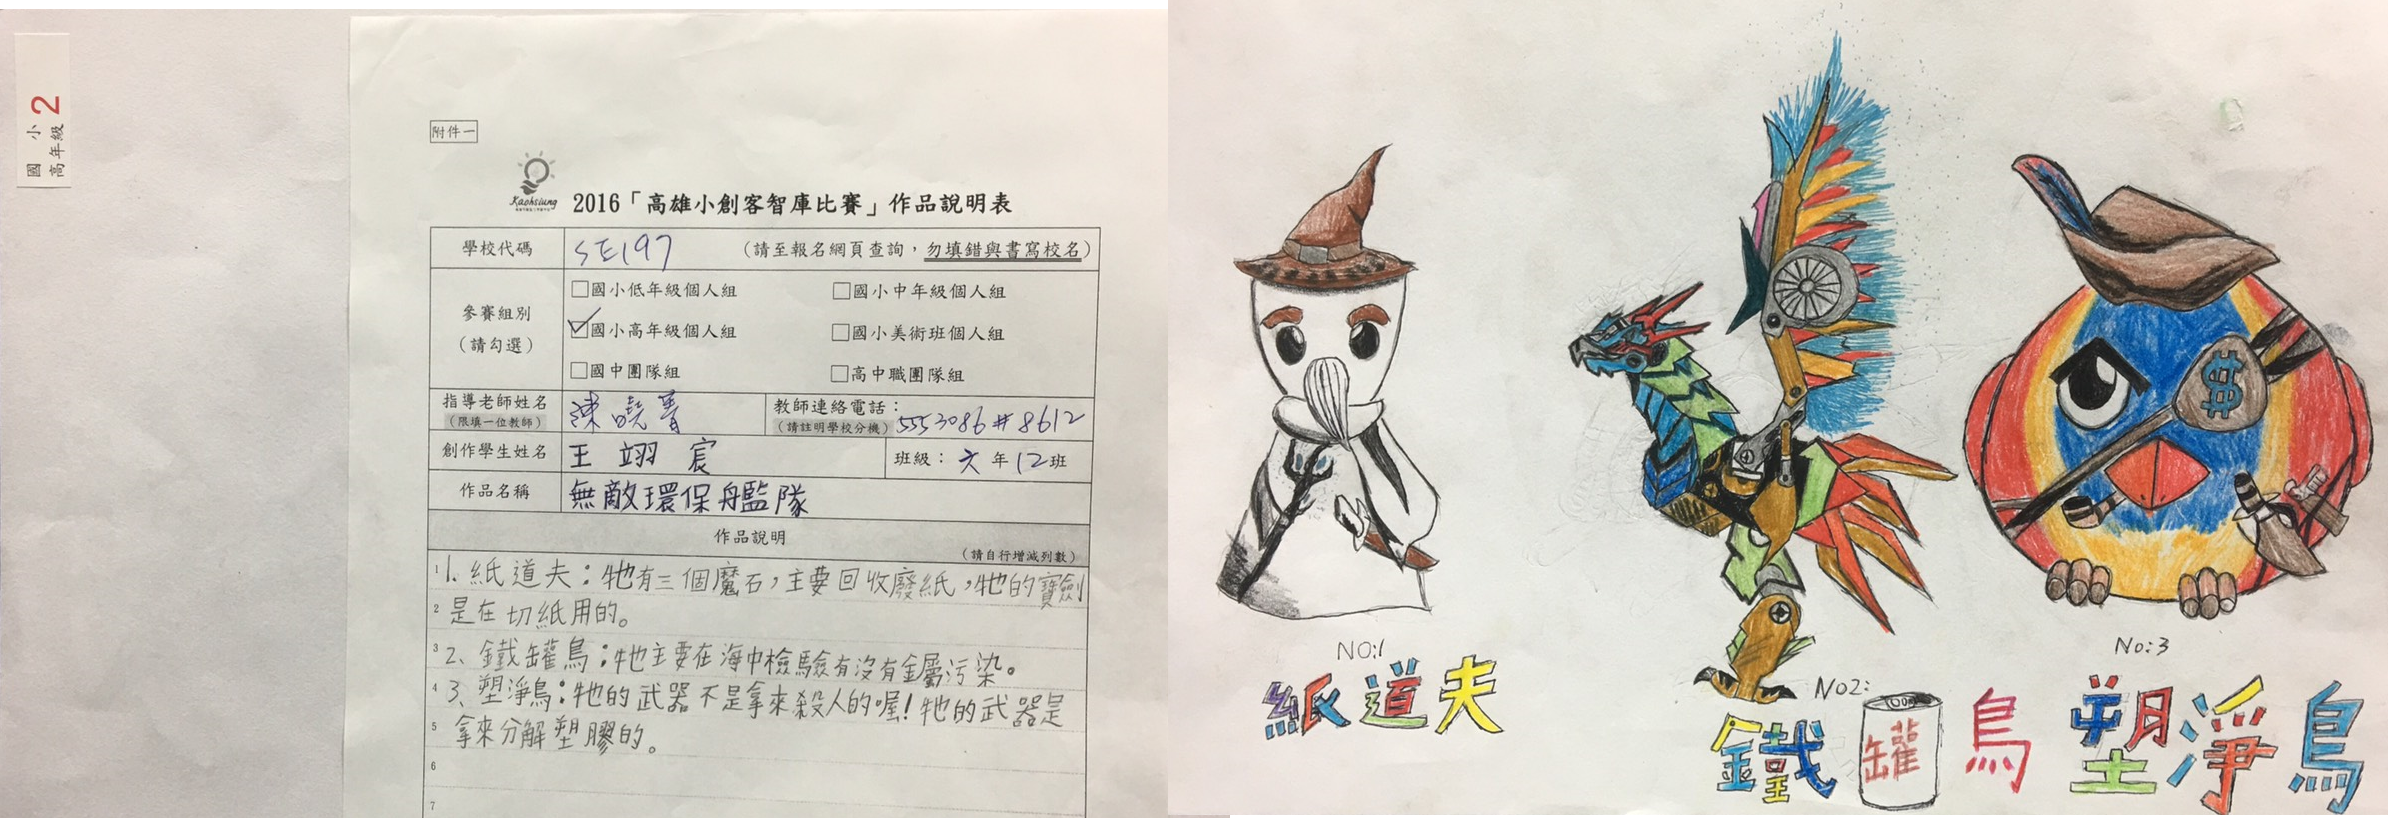 國小
高年級 2
附件一
Kaohsiung
2016「高雄小創客智庫比賽」作品說明表
學校代碼 SE197 (請至報名網頁查詢，勿填錯與書寫校名)
參賽組別
(請勾選)
□國小低年級個人組 □國小中年級個人組
☑國小高年級個人組 □國小美術班個人組
□國中團隊組 □高中職團隊組
指導老師姓名 陳曉菁 教師連絡電話：
(限填一位教師) (請註明學校分機) 5553086#8612
創作學生姓名 王翊宸 班級：六年12班
作品名稱 無敵環保舟監隊
作品說明
(請自行增減列數)
1 1.紙道夫：牠有三個魔石，主要回收廢紙，牠的寶劍
2 是在切紙用的。
3 2、鐵罐鳥：牠主要在海中檢驗有沒有金屬污染。
4 3、塑淨鳥：牠的武器不是拿來殺人的喔！牠的武器是
5 拿來分解塑膠的。
6
7
$
NO:1
紙道夫
NO2:
鐵罐鳥
No:3
塑淨鳥